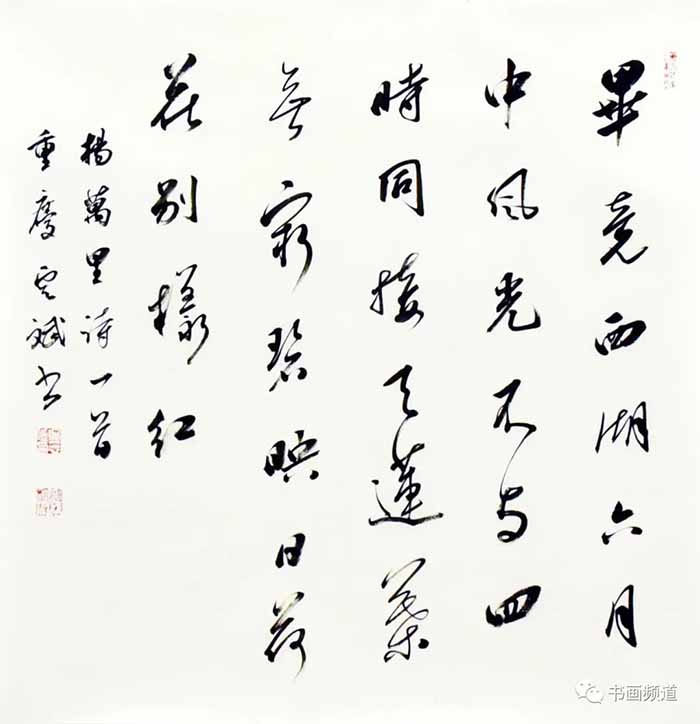 畢竟西湖六月
中風光不与四
時同接天蓮葉
無窮碧映日荷
花別樣紅
楊萬里詩一首
重慶雲斌书
书画频道